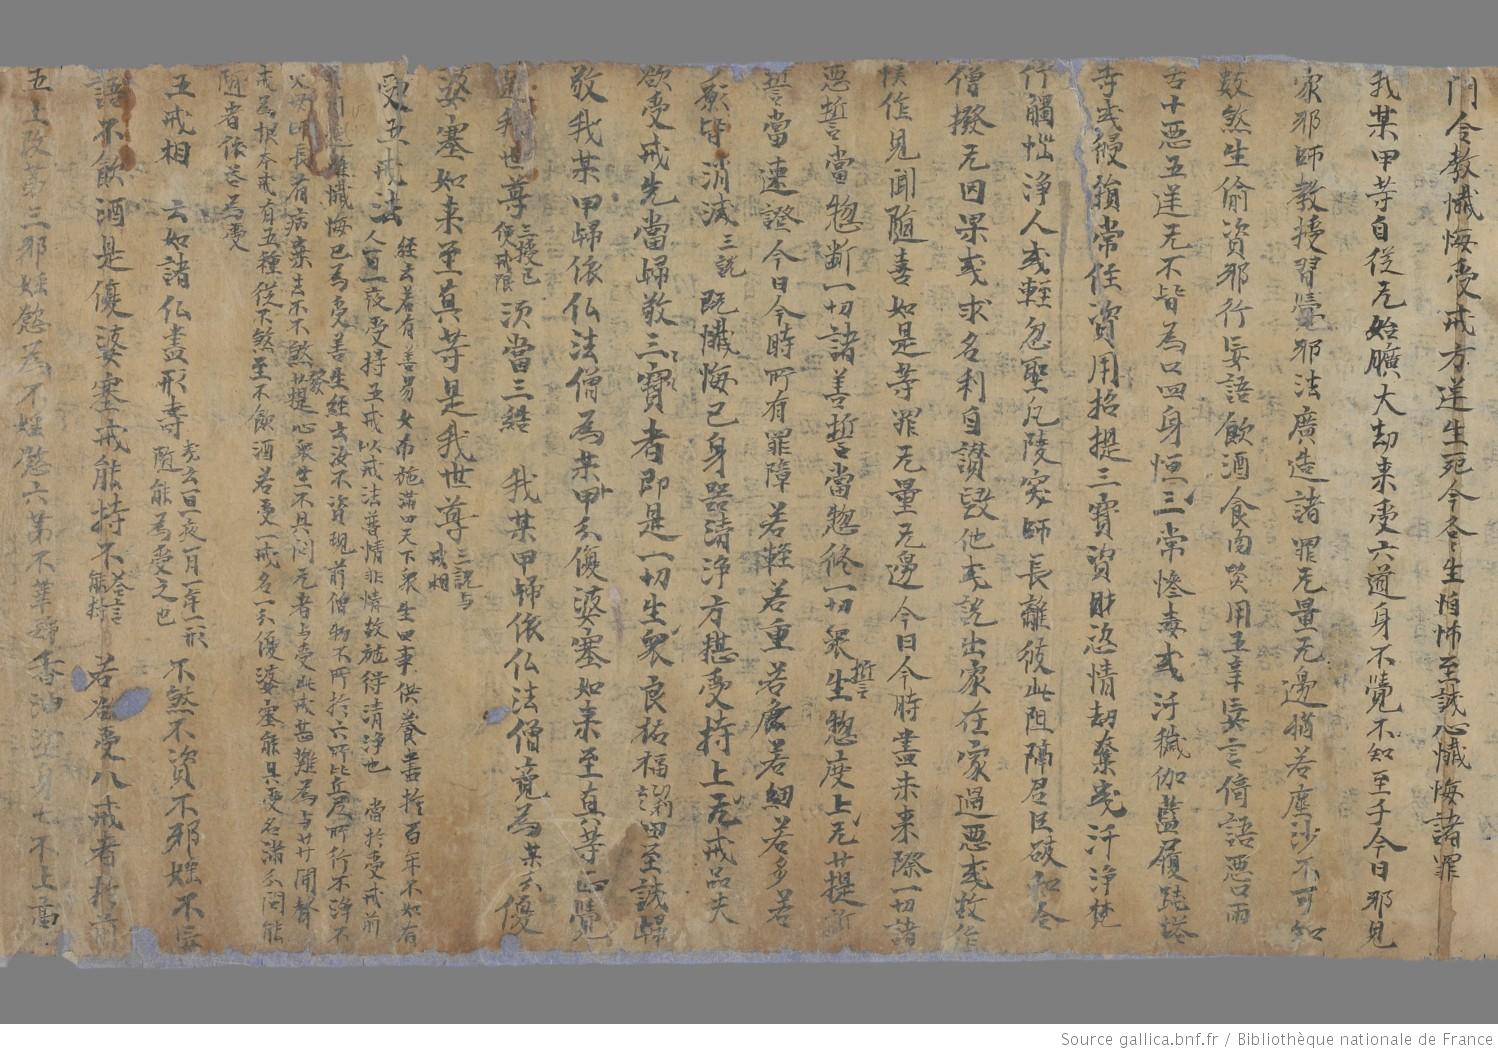 門令教懴悔受戒方送生死今各生怕怖至誠心懴悔諸罪
我某甲等自從无始曠大劫来受六道身不覺不知至于今日邪見
家邪師教授習覺邪法廣造諸罪无量无邊猶若塵沙不可知
數煞生偷盗邪行妄語飲酒食肉噉用五辛妄言倚語惡口兩
舌十惡五逆无不皆為口四身恒三常慘毒或汙穢伽藍履踐塔
寺或慢損常住資用招提三寶資財恣情劫奪或汙淨梵
行觸惱淨人或輕忽聖凡陵突師長離彼此阻障君臣破和合
僧撥无因果或求名利自讃毀他或説出家在家過惡或故作
悮作見聞隨喜如是等罪无量无邊今日今時盡未来際一切諸
惡誓當惣断一切諸善誓當惣修一切衆生誓惣度上无菩提
誓當速證今日今時所有罪障若輕若重若麁若細若多若
願皆消滅三説 既懴悔已身器清淨方堪受持上无戒品夫
欲受戒先當歸敬三寶者即是一切生衆良祐福田至誠歸
敬我某甲歸依仏法僧為某甲優婆塞如来至真等正覺
是我世尊三授已便戒限 須當三結 我某甲歸依仏法僧竟為某優
婆塞如来至真等是我世尊三説与戒相
受五戒法 經云若有善男女布施滿四天下衆生四事供養盡於百年不如有
人一日一夜受持五戒以戒法普情非情故施得清浄也 當於受戒前
懴悔已為受善生經云汝不資現前僧物不所於六師比丘尼所行不淨不
父母師長有病棄去不不煞菩提心衆生不具問无者与受此戒甚難為与聞聲
戒為根本戒有五種從不煞至不飲酒若受一戒名一分優婆塞能具受名滿分問能
隨者依若為受
五戒相 云如諸仏盡形壽 隨能為受之也 不煞不盗不邪婬不妄
語不飲酒是優婆塞戒能持不答言能持 若為受八戒者於前
五上改第三邪婬慾為不婬慾六第不華香油塗身七不上高
Source gallica.bnf.fr / Bibliothèque nationale de France